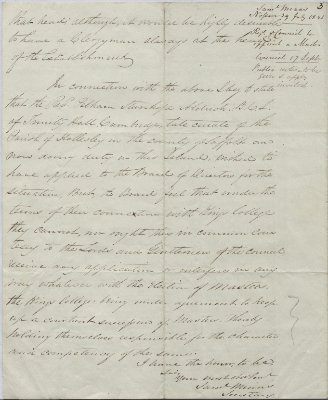 3
Saml Moore
that heads although, it would be highly desirable
to have a Clergyman always at the head
of the Establishment
In connection with the above I beg to state
that the Revd Pelham Stanhope
of Trinity Hall Cambridge, late Curate of the
Parish of Hollesley in the County of Suffolk
now doing duty in this Island, wished to
have applied to the Board of Directors for the
Situation. But the Board feel that under the
terms of their connection with Kings College
they cannot, nor ought they in common cour
tesy to the Lords and Gentlemen of the Council
receive any application or interfere in any
way whatever with the election of Masters.
the Kings College being under agreement to keep
up a constant succession of Masters thereby
holding themselves responsible for the character
and competency of the same.
I have the honor to be
Sir
Your most obedient
Saml Moore
Secretary